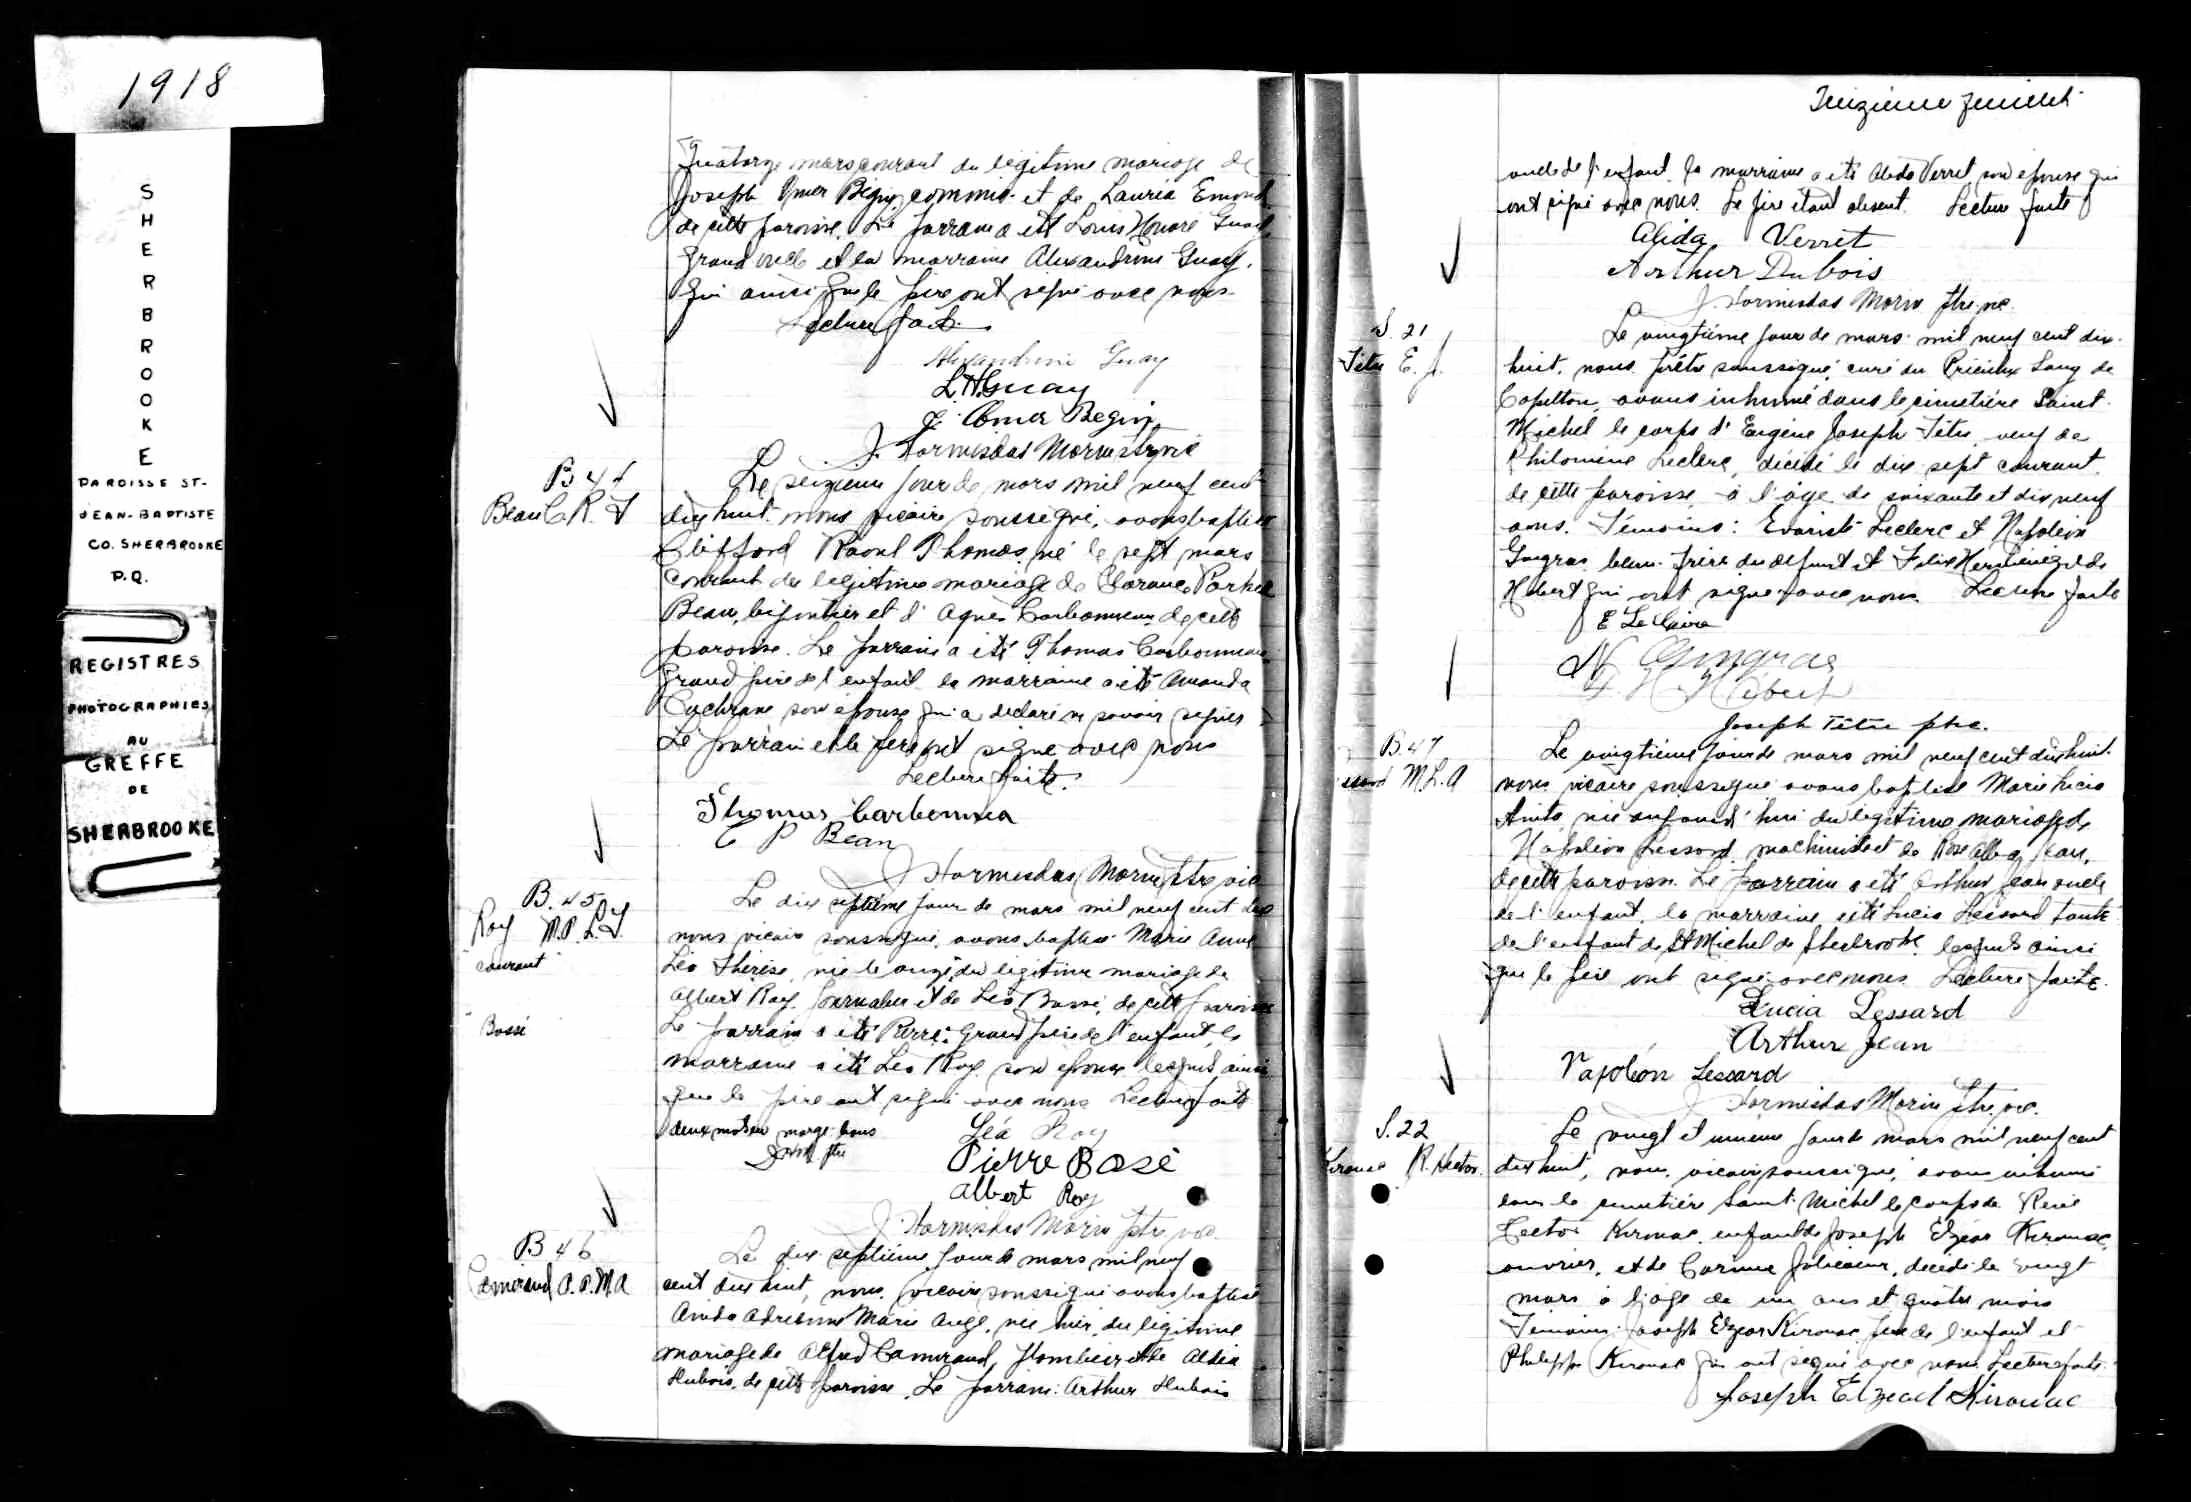 1918
SHERBROOKE
PAROISSE ST-
JEAN-BAPTISTE
CO. SHERBROOKE
P.Q.
REGISTRES
PHOTOGRAPHIES
AU
GREFFE
DE
SHERBROOKE
quatorze mars courant du légitime mariage de
Joseph Omer Bégin, commis et de Lauria Emond
de cette paroisse. Le parrain a été Louis Honoré Guay,
grand oncle et la marraine Alexandrine Guay,
qui ainsi que le père ont signé avec nous
Lecture faite.
Alexandrine Guay
L. H. Guay
J. Omer Begin
J. Hormisdas Morin ptre vic
B 44
Bean C. R. T
Le seizième jour de mars mil neuf cent
dix huit nous vicaire soussigné, avons baptisé
Clifford Raoul Thomas, né le sept mars
courant du légitime mariage de Clarance Parker
Bean, bijoutier et d'Agnès Carbonneau de cette
paroisse. Le parrain a été Thomas Carbonneau
grand père de l'enfant la marraine a été Amanda
Cochrane son épouse qui a déclaré ne savoir signer
Le parrain et le père ont signé avec nous
Lecture faite.
Thomas Carbonnea
C P Bean
J Hormisdas Morin ptre vic
B. 45
Roy M. A. L. T.
Le dix septième jour de mars mil neuf cent dix
nous vicaire soussigné, avons baptisé Marie Anne
"courant"
Léa Thérèse, née le onze du légitime mariage de
Albert Roy, journalier et de Léa Bossé, de cette paroisse
"Bossé
Le parrain a été Pierre grand père de l'enfant, la
marraine a été Léa Roy son épouse lesquels ainsi
que le père ont signé avec nous Lecture faite
deux mots en marge bons
J.H.M. ptre
Léa Roy
Pierre Bosé
Albert Roy
J. Hormisdas Morin ptre vic.
B 46
Camirand A. A. M. A
Le dix septième jour de mars mil neuf
cent dix huit, nous, vicaire soussigné avons baptisé
Adrienne Marie Ange, née hier, du légitime
mariage de Alfred Camirand, plombier et de Aldéa
Dubois, de cette paroisse. Le parrain: Arthur Dubois
Treizième feuillet
oncle de l'enfant, la marraine a été Alida Verret, son épouse qui
ont signé avec nous. Le père étant absent. Lecture faite
Alida Verret
Arthur Dubois
J. Hormisdas Morin ptre vic.
S. 21
Têtu E. J.
Le vingtième jour de mars mil neuf cent dix-
huit, nous, prêtre soussigné, curé du Précieux Sang de
Capelton, avons inhumé dans le cimetière Saint-
Michel le corps d'Eugène Joseph Têtu, veuf de
Philomène Leclerc, décédé le dix-sept courant,
de cette paroisse, à l'âge de soixante et dix neuf
ans. Témoins: Evariste Leclerc et Napoléon
Gingras, beau-frère du défunt et Félix Herménégilde
Hébert qui ont signé avec nous. Lecture faite
N. Gingras
F. H. Hébert
Joseph Têtu ptre.
B. 47
essard M. L. A
Le vingtième jour de mars mil neuf cent dix huit
nous vicaire soussigné avons baptisé Marie Lucia
Anita, née aujourd'hui du légitime mariage de
Napoléon Lessard, machiniste et de Rose Alba Jean,
de cette paroisse. Le parrain a été Arthur Jean oncle
de l'enfant, la marraine a été Lucia Lessard tante
de l'enfant de St Michel de Sherbrooke, lesquels ainsi
que le père ont signé avec nous. Lecture faite.
Lucia Lessard
Arthur Jean
Napoléon Lessard
J Hormisdas Morin ptre, vic.
S. 22
Kirouac R. Hector.
Le vingt et unième jour de mars mil neuf cent
dix huit, nous, vicaire soussigné, avons inhumé
dans le cimetière Saint Michel le corps de René
Hector Kirouac, enfant de Joseph Elzéar Kirouac,
ouvrier, et de Corinne Jolicoeur, décédé le vingt
mars à l'âge de un ans et quatre mois
Témoins: Joseph Elzéar Kirouac père de l'enfant et
Philippe Kirouac qui ont signé avec nous Lecture faite.
Joseph Elzéad Kirouac